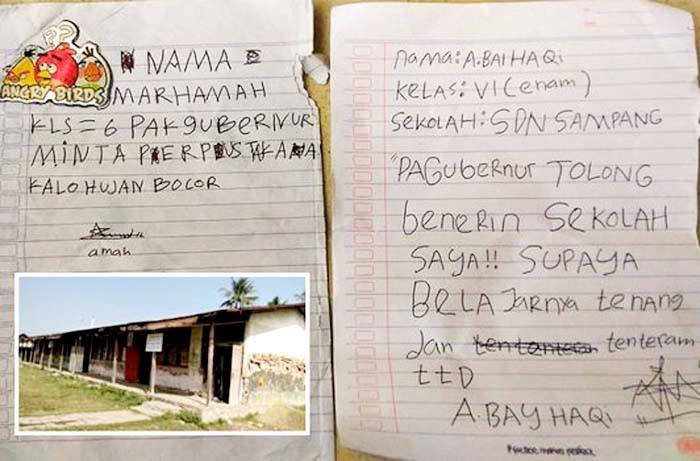 ??
ANGRY BIRDS
NAMA
MARHAMAH
KLS = 6 PAK gUBERNUR
MINTA PERPUSTAKAAN
KALO HUJAN BOCOR
amah
nama: A.BAI HAQi
KELAS: VI (enam)
SEKOLAH: SDN SAMPANG
"PAGubernur TOLONG
benerin SEKOLAH
SAYA!! SUPAYA
BELAJARnya tenang
dan tenteram
ttD
A.BAY HAQi